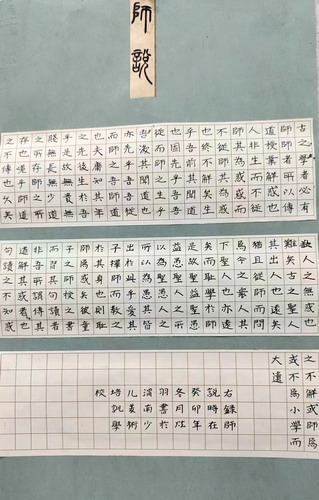 師說
古之學者必有
師師者所以傳
道授業解惑也
人非生而不從
師其為惑
不從師其為惑
也終不解矣生
乎吾前其聞道
也固先乎吾吾
從而師之生乎
吾後其聞道也
亦先乎吾吾從
而師之吾師道
也夫庸知其年
之先後生於吾
乎是故無貴無
賤無長無少道
之所存師之所
存也嗟乎師道
之不傳也久矣
欲人之無惑也
難矣古之聖人
其出人也遠矣
猶且從師而問
焉今之衆人其
下聖人也亦遠
矣而恥學於師
是故聖益聖愚
益愚聖人之所
以為聖愚人之
所以為愚其皆
出於此乎愛其
子擇師而教之
於其身也則恥
師焉惑矣彼童
子之師授之書
而習其句讀者
非吾所謂傳其
道解其惑者也
句讀之不知惑
之不解或師焉
或不焉小學而
大遺
右錄師
說時在
癸卯年
冬月炷
羽書於
渭南少
儿美術
培訓學
校